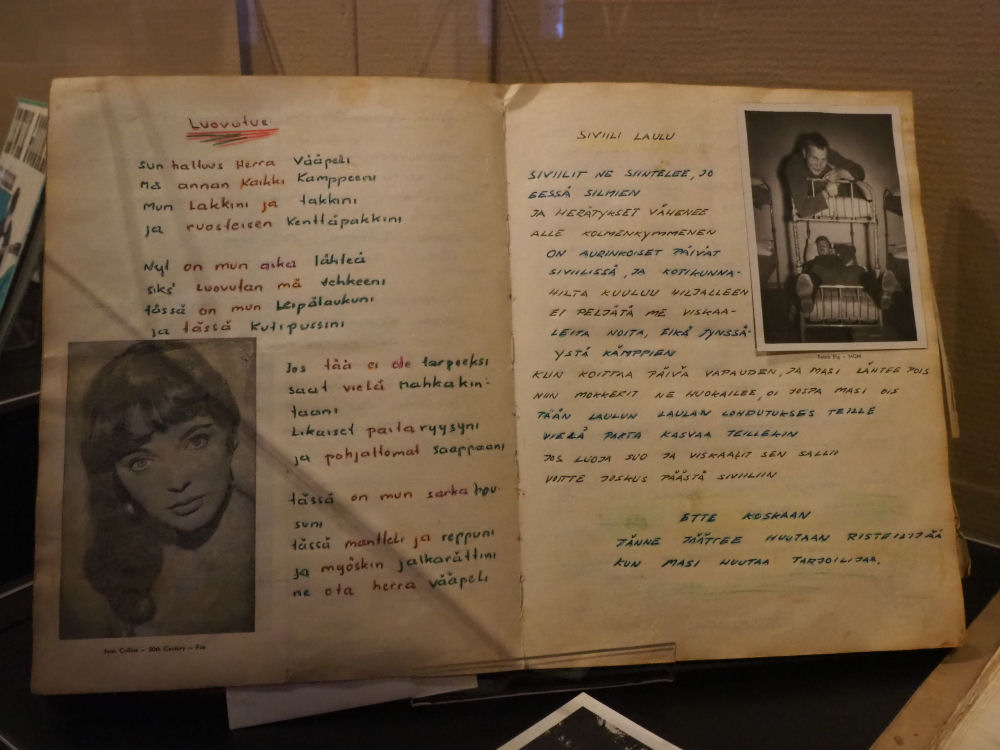 Luovutus
sun haltuus Herra Vääpeli
Mä annan Kaikki Kamppeeni
Mun Lakkini ja takkini
ja ruosteisen Kenttäpakkini
Nyt on mun aika lähteä
siks' luovutan mä vehkeeni
tässä on mun Leipälaukuni
ja tässä Kutipussini
Jos tää ei ole tarpeeksi
saat vielä Nahkakin-
taani
Likaiset paitaryysyni
ja pohjattomat saappaani
tässä on mun sarka
suni
tässä mantteli ja reppuni
ja myöskin jalkarättini
ne ota herra vääpeli
Joan Collins — 20th Century — Fox
SIVIILI LAULU
SIVIILIT NE SIINTELEE, JO
EESSÄ SILMIEN
JA HERÄTYKSET VÄHENEE
ALLE KOLMENKYMMENEN
ON AURINKOISET PÄIVÄT
SIVIILISSÄ, JA KOTIKUNNA-
HILTA KUULUU HILJALLEEN
EI PELJÄTÄ ME VISKAA-
LEITA NOITA, EIKÄ JYNSSÄ-
YSTÄ KÄMPPIEN
KUN KOITTAA PÄIVÄ VAPAUDEN, JA MASI LÄHTEE POIS
NIIN MOKKERIT NE HUOKAILEE, OI JOSPA MASI OIS
TÄÄN LAULUN LAULAN LOHDUTUKSES TEILLE
VIELÄ PARTA KASVAA TEILLEKIN
JOS LUOJA SUO JA VISKAALIT SEN SALLII
VOITTE JOSKUS PÄÄSTÄ SIVIILIIN
ETTE KOSKAAN
TÄNNE JÄÄTTEE HUUTAAN RISTEILIJÄÄ
KUN MASI HUUTAA TARJOILIJAA.
MGM